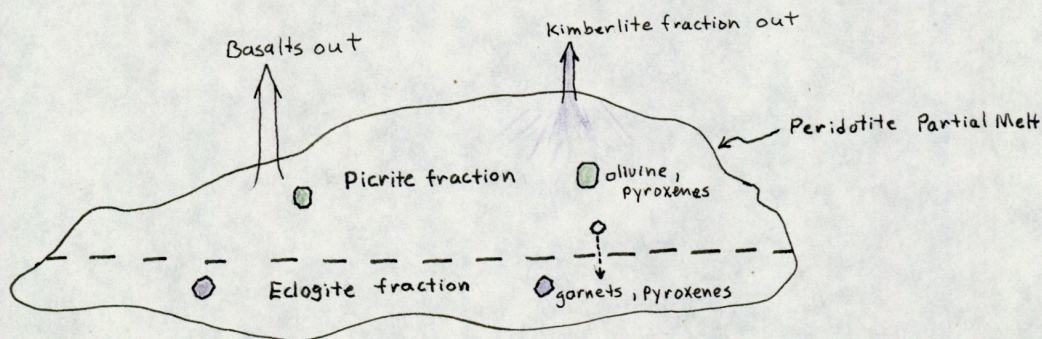 Basalts out
Kimberlite fraction out
Peridotite Partial Melt
Picrite fraction
olivine,
pyroxenes
Eclogite fraction
garnets, pyroxenes